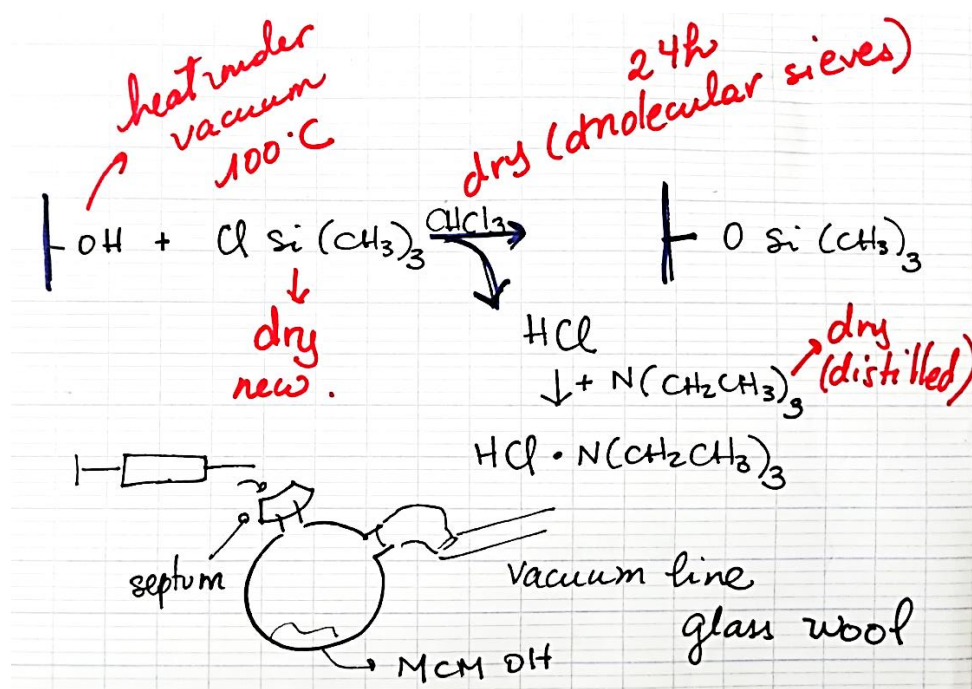 heat under
vacuum
100°C
24h
dry (molecular sieves)
OH + Cl Si (CH3)3 CHCl3 O Si (CH3)3
dry
new.
HCl
+ N(CH2CH3)3
dry
(distilled)
HCl • N(CH2CH3)3
septum
vacuum line
glass wool
MCM OH